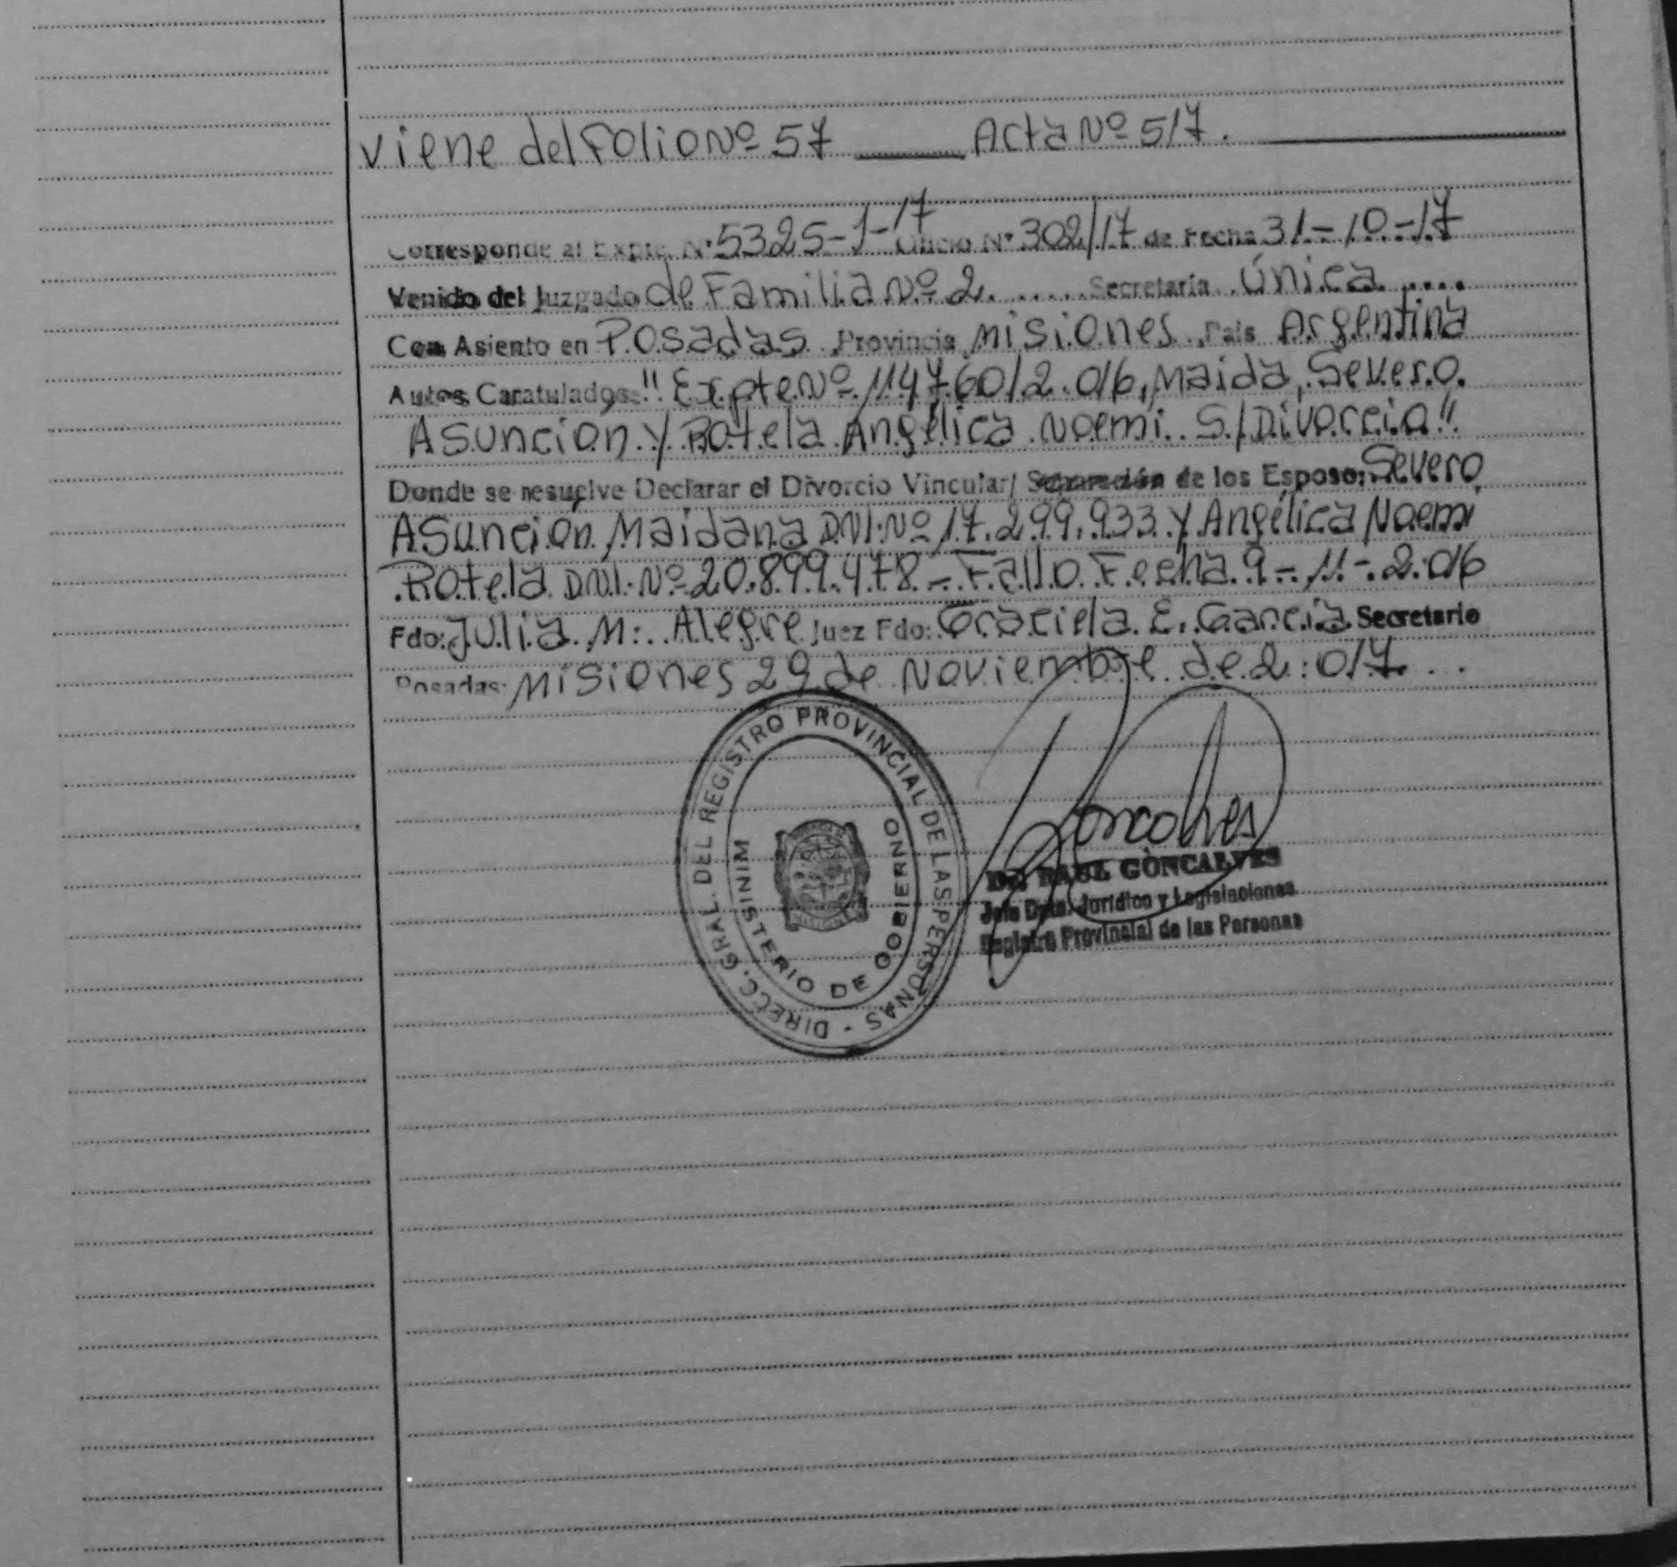 Viene del Folio Nº 57 ____ Acta Nº 517.
Corresponde al Expte. Nº 5325-1-17 Oficio Nº 302/17 de Fecha 31-10-17
Venido del Juzgado de Familia Nº 2 ..... Secretaría Única ....
Con Asiento en Posadas Provincia Misiones País Argentina
Autos Caratulados: "Expte Nº 114760/2.016, Maida, Severo
Asuncion y Rotela Angélica Noemi S/Divorcio"
Donde se resuelve Declarar el Divorcio Vincular/ Separación de los Esposo: Severo
Asunción Maidana DNI. Nº 17.299.933 y Angélica Noemi
Rotela DNI. Nº 20.899.478 - Fallo Fecha 9-11-2.016
Fdo: Julia M. Alegre Juez Fdo: Graciela E. Garcia Secretario
Posadas: Misiones 29 de Noviembre de 2.017...
DIRECC. GRAL. DEL REGISTRO PROVINCIAL DE LAS PERSONAS -
MINISTERIO DE GOBIERNO
Goncalves
Dr. RAUL GONCALVES
Jefe Dpto. Jurídico y Legislaciones
Registro Provincial de las Personas